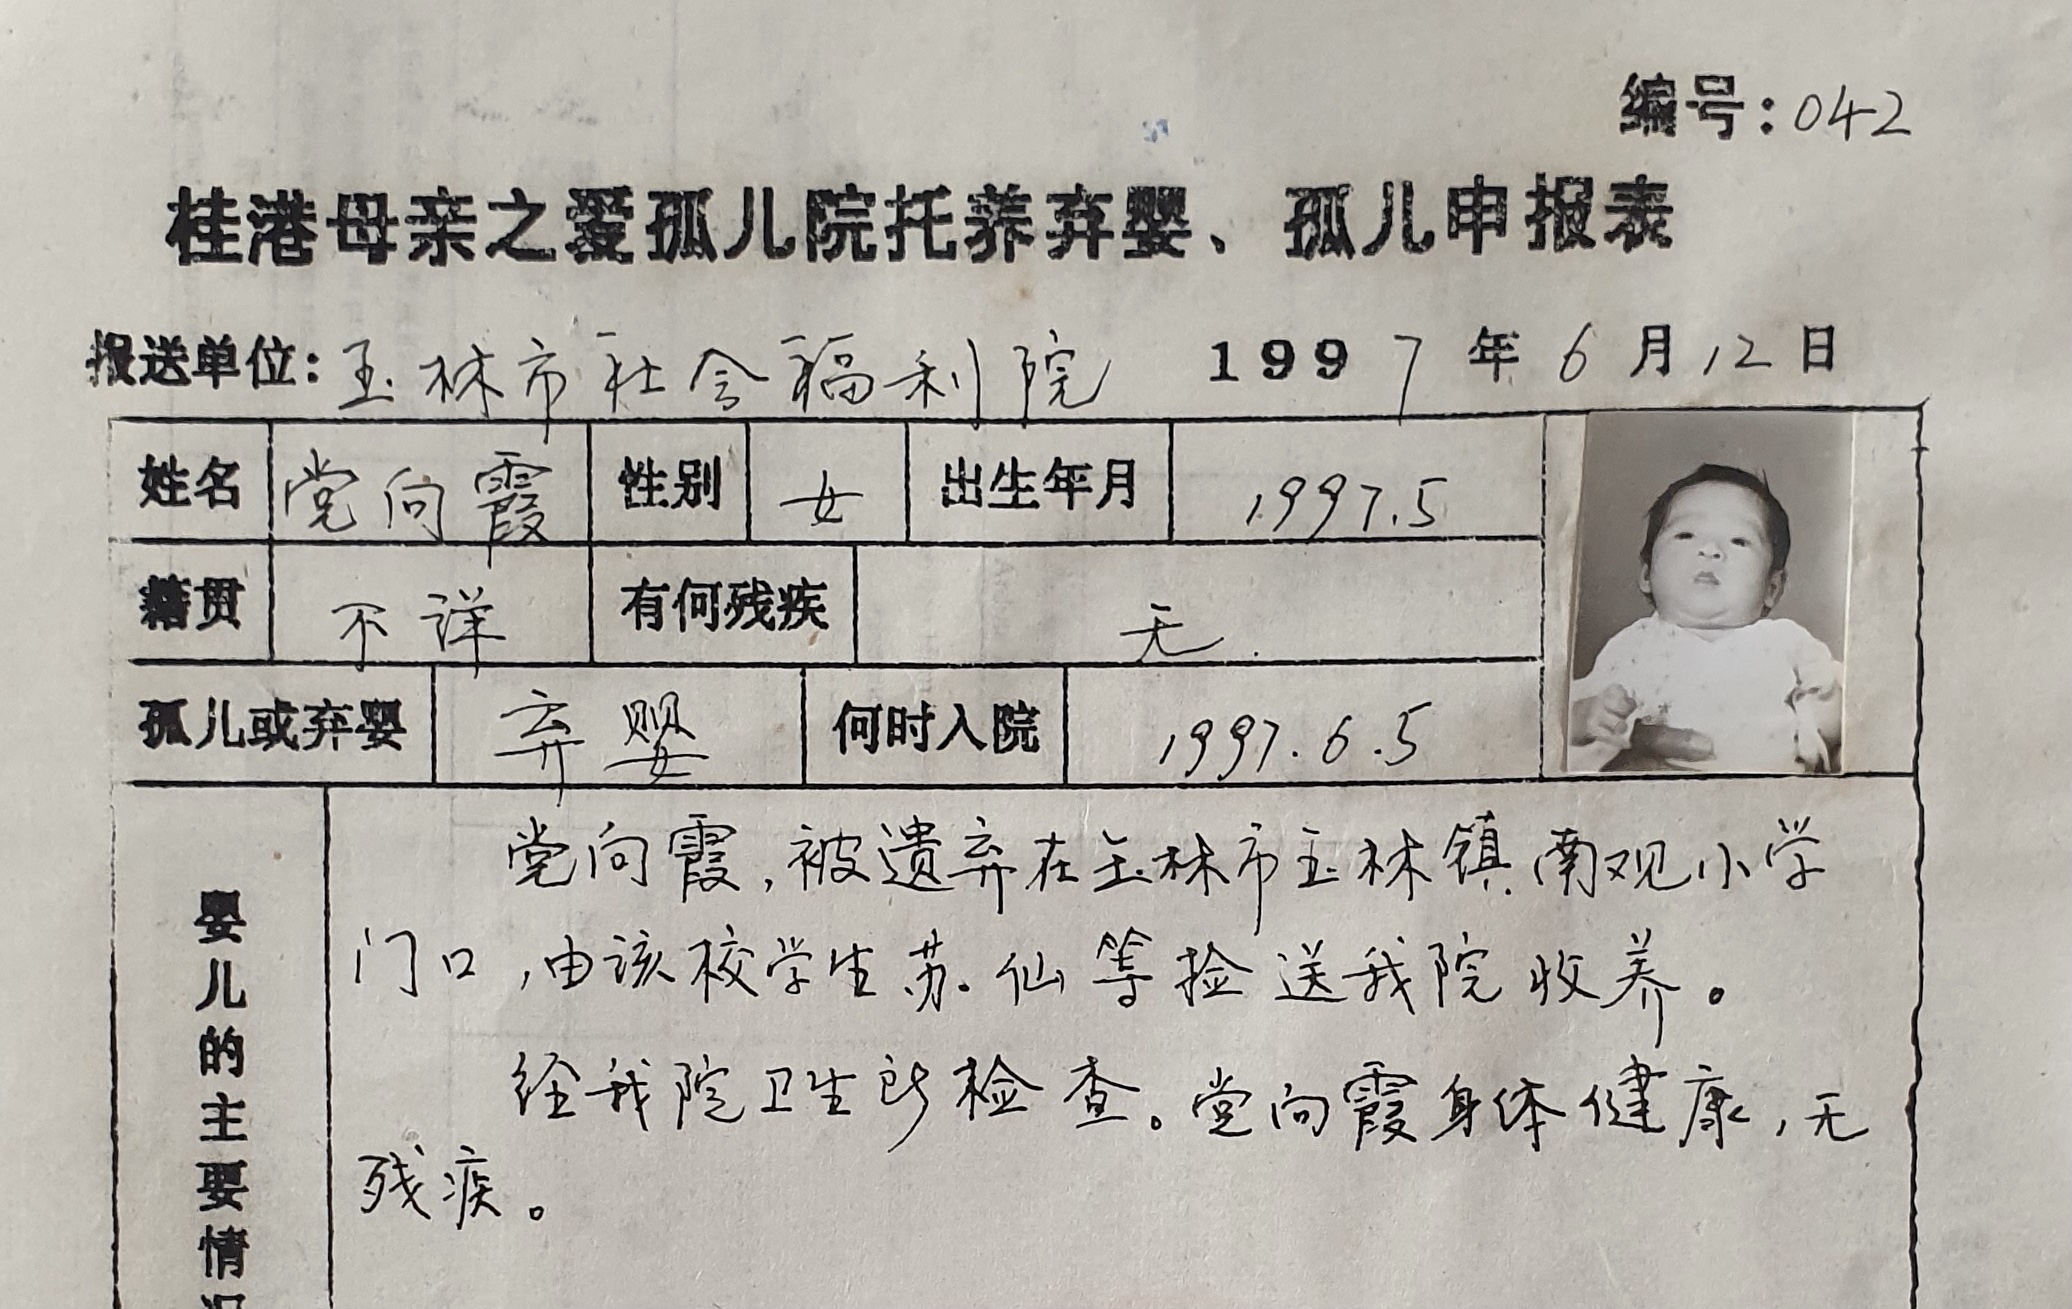 编号：042
桂港母亲之爱孤儿院托养弃婴、孤儿申报表
报送单位：玉林市社会福利院 1997年6月12日
姓名 党向霞 性别 女 出生年月 1997.5
籍贯 不详 有何残疾 无.
孤儿或弃婴 弃婴 何时入院 1997.6.5
婴儿的主要情况
党向霞，被遗弃在玉林市玉林镇南观小学
门口，由该校学生苏仙等捡送我院收养。
经我院卫生所检查。党向霞身体健康，无
残疾。